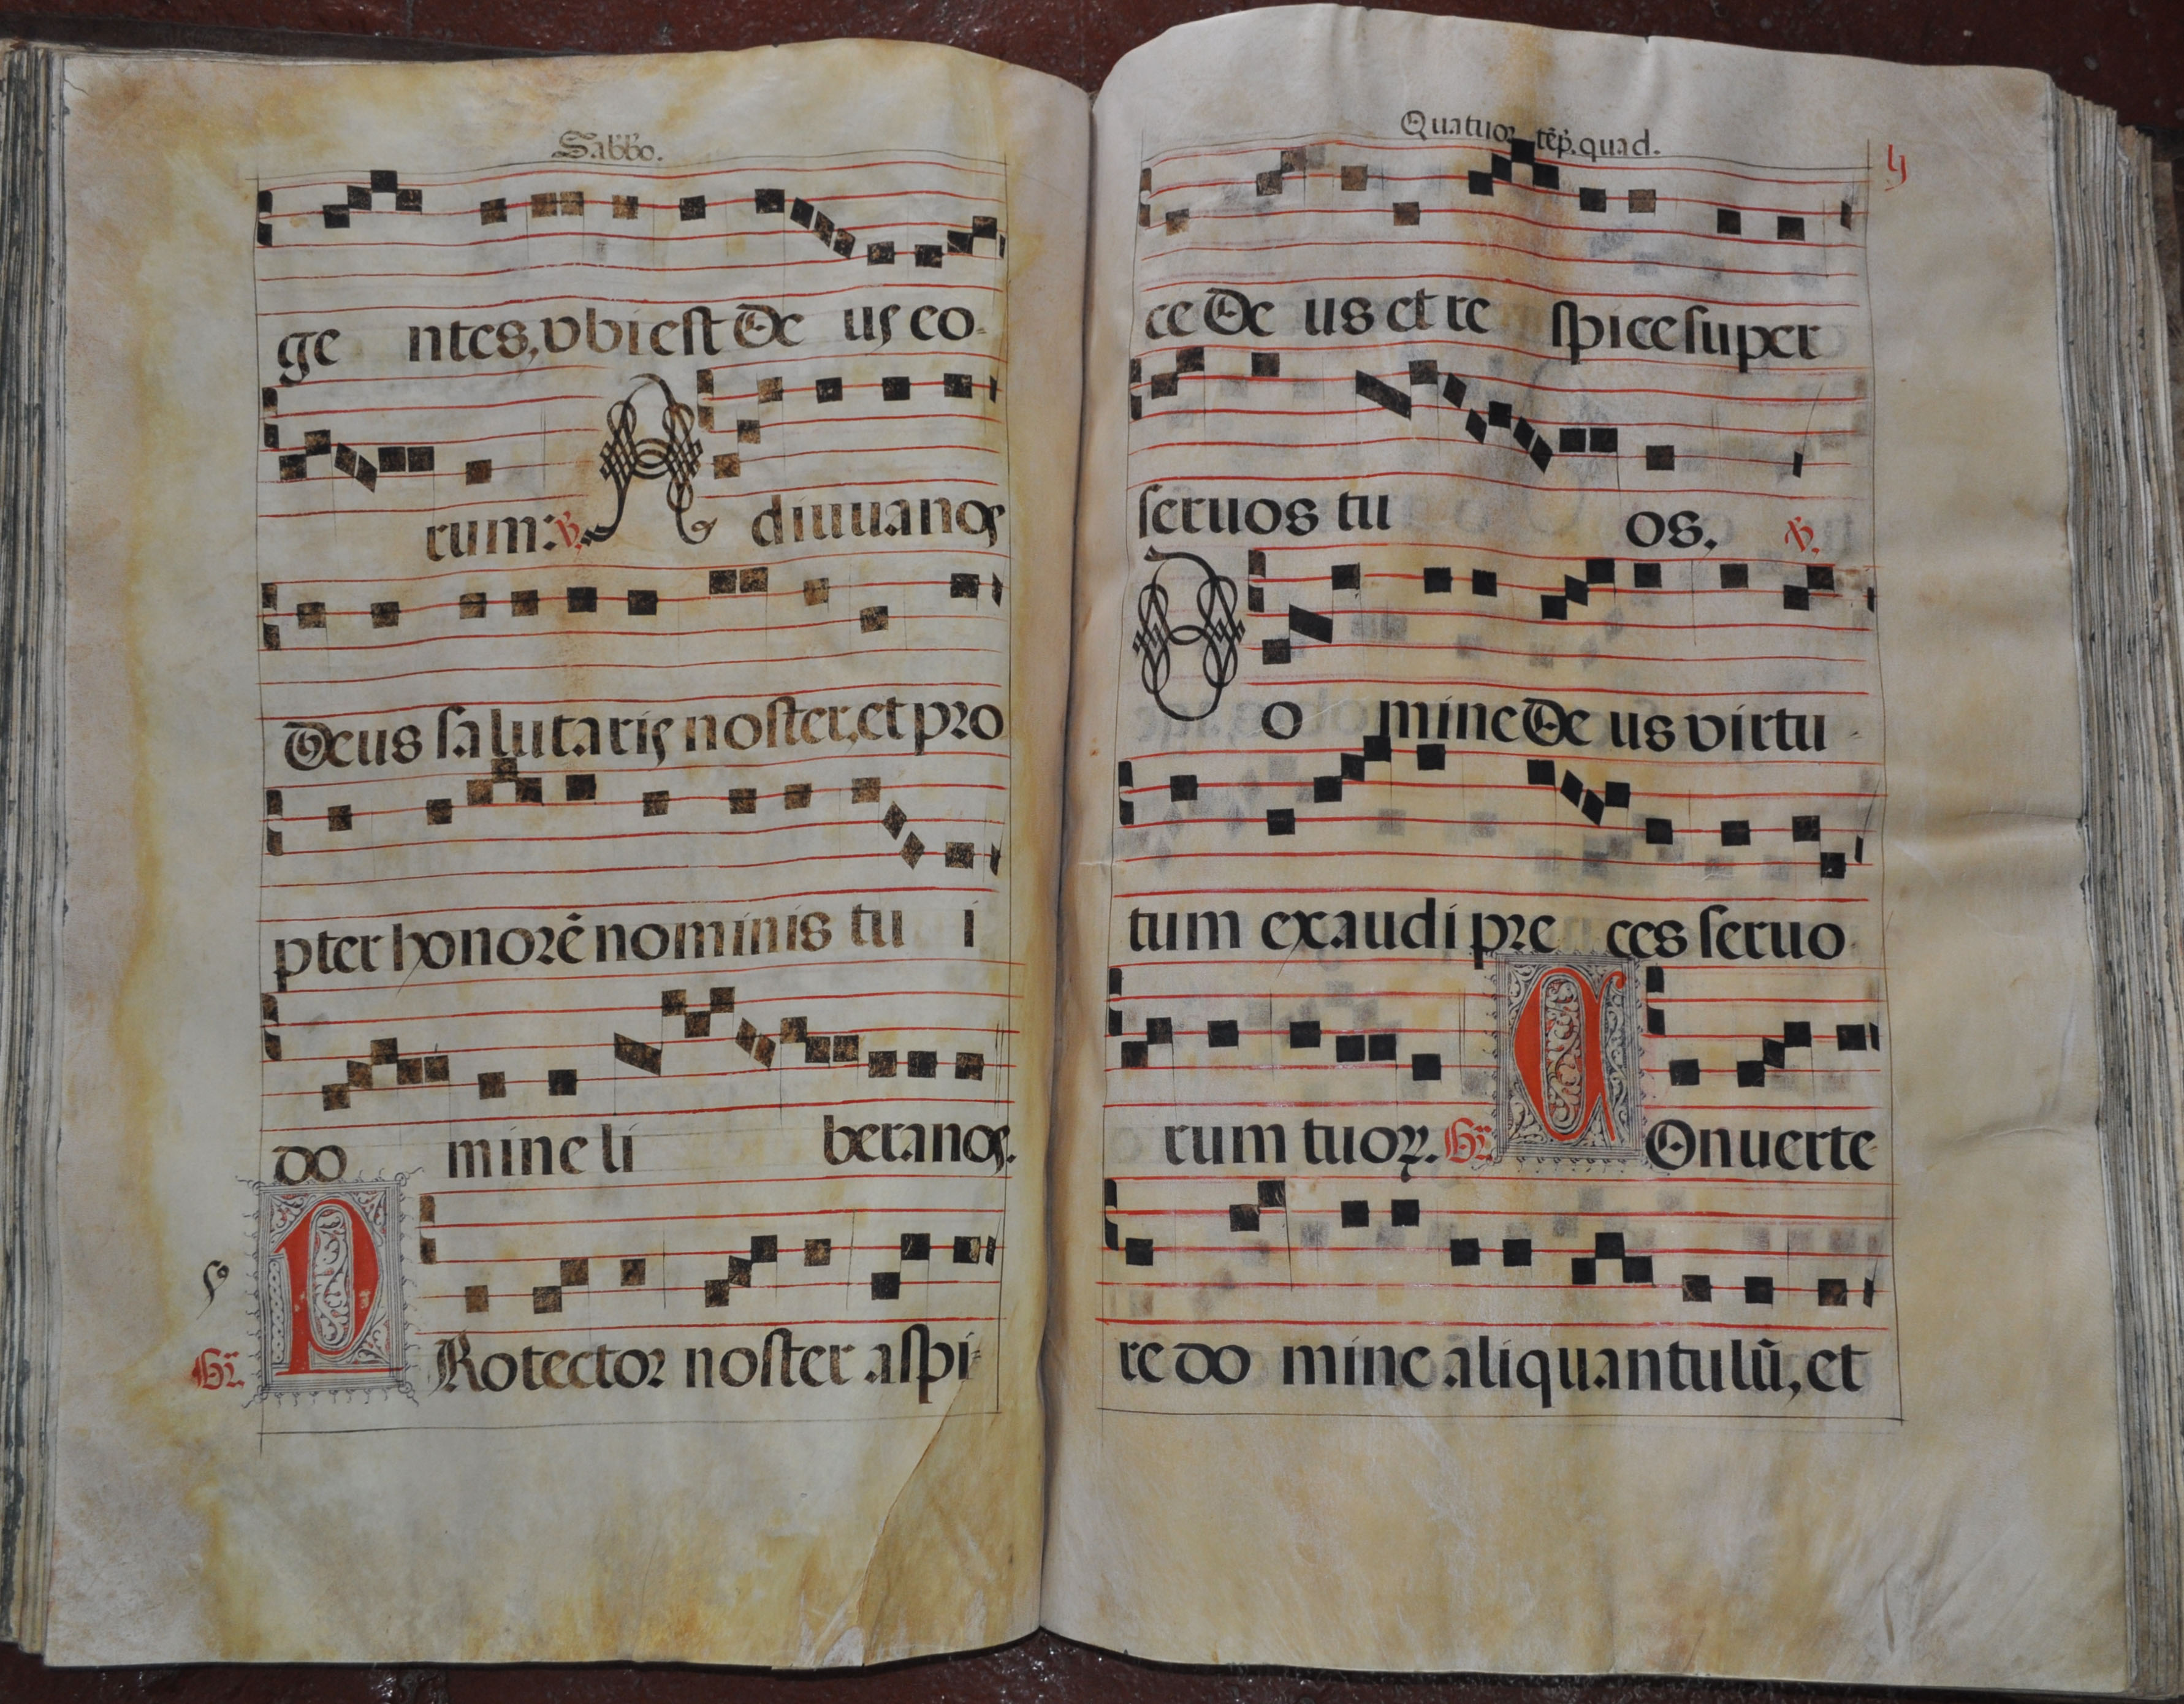 Sabbo.
ge ntes, vbi est De us eo-
rum: ℣. A diuuanos
Deus salutaris noster, et pro
pter honorē nominis tu i
do mine li beranos.
Gr̃. P Rotector noster aspi-
Quatuor tēp. quad.
ce De us et re spice super
seruos tu os. ℣.
D o mine De us virtu-
tum exaudi pre ces seruo
rum tuoꝝ. Gr̃. C Onuerte
re do mine aliquantulū, et